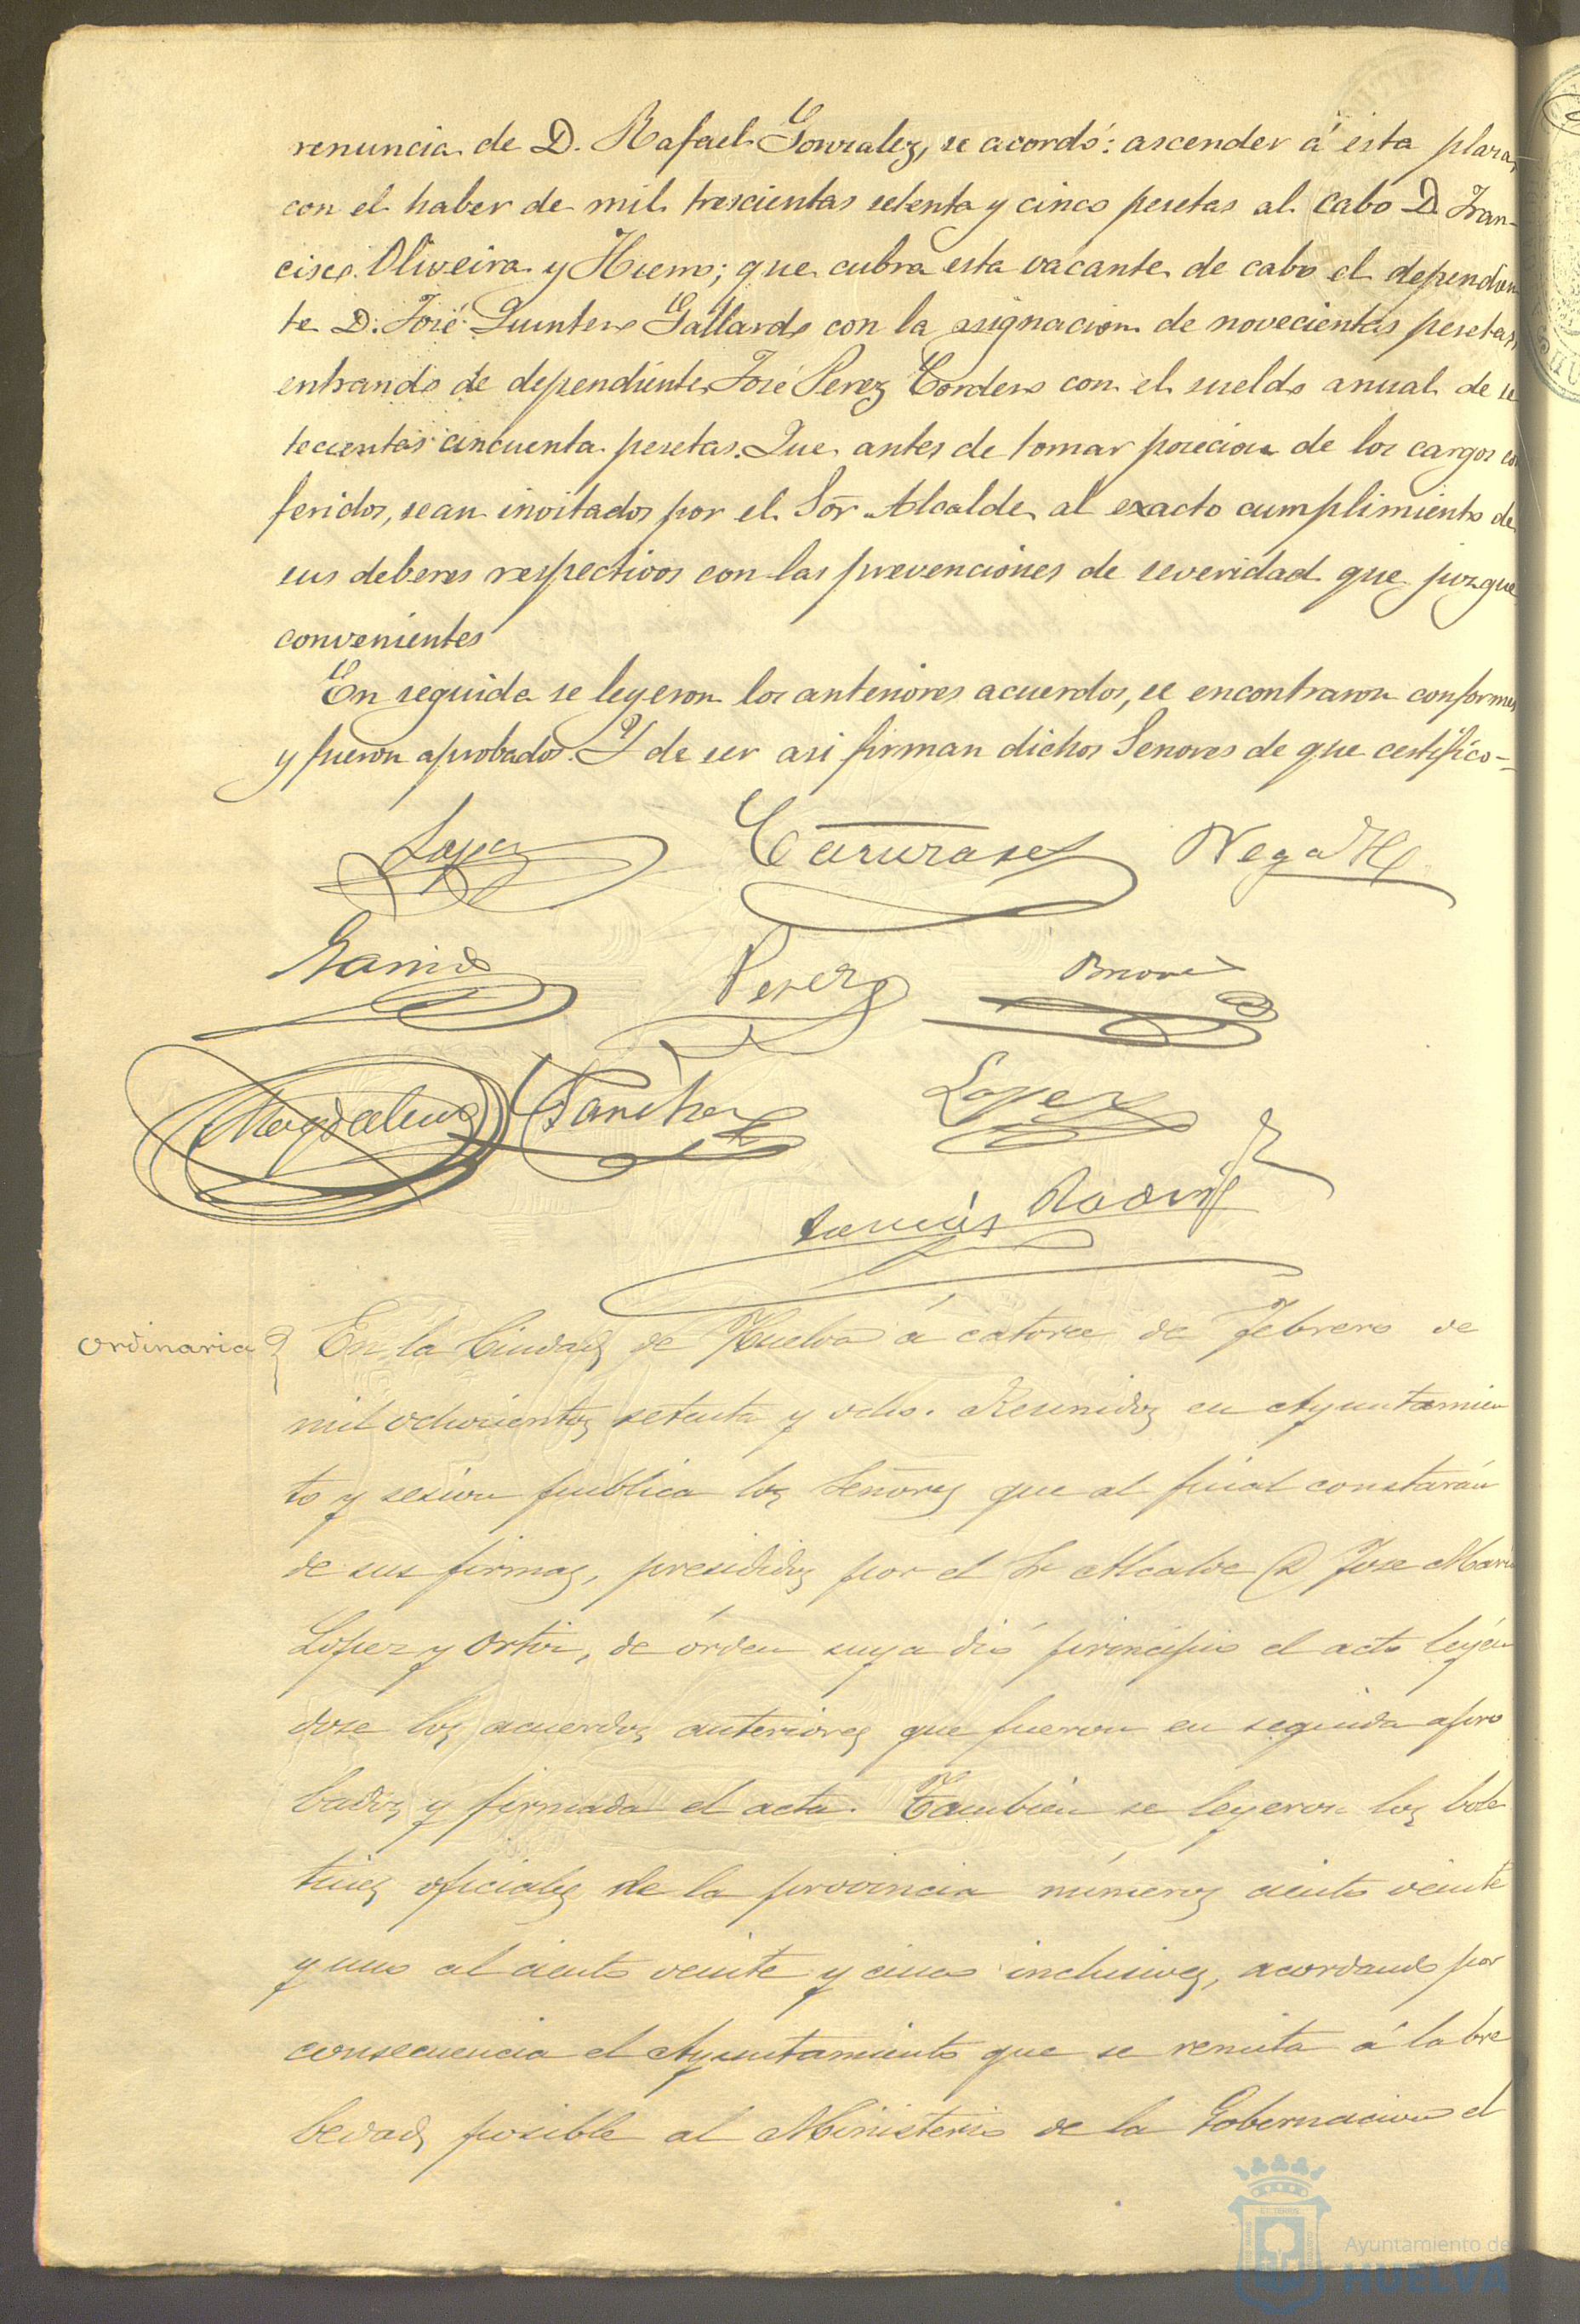 renuncia de D. Rafael Gonzalez, se acordó: ascender á esta plaza,
con el haber de mil trescientas setenta y cinco pesetas al cabo D. Fran-
cisco Oliveira y Hierro; que cubra esta vacante de cabo el dependien
te D. José Quintero Gallardo con la asignacion de novecientas pesetas,
entrando de dependiente José Perez Cordero con el sueldo anual de se
tecientas cincuenta pesetas. Que antes de tomar posecion de los cargos con
feridos, sean invitados por el Sor. Alcalde al exacto cumplimiento de
sus deberes respectivos con las prevenciones de severidad que juzgue
convenientes
En seguida se leyeron los anteriores acuerdos, se encontraron conformes
y fueron aprobados. Y de ser asi firman dichos Senores de que certifico-
Lopez
Vega
Garrido Perez
Magdaleno Sanchez Lopez
Tomás
Ordinaria En la Ciudad de Huelva á catorce de Febrero de
mil ochocientos setenta y ocho. Reunidos en Ayuntamien
to y sesion publica los Señores que al final constarán
de sus firmas, presididos por el Sr Alcalde D José Maria
Lopez y Ortiz, de órden suya dió principio el acto leyén
dose los acuerdos anteriores que fueron en seguida apro
bados y firmada el acta. Tambien se leyeron los bole
tines oficiales de la provincia números ciento veinte
y uno al ciento veinte y cinco inclusives, acordando por
consecuencia el Ayuntamiento que se remita á la bre
bedad posible al Ministerio de la Gobernacion el
Ayuntamiento de
HUELVA